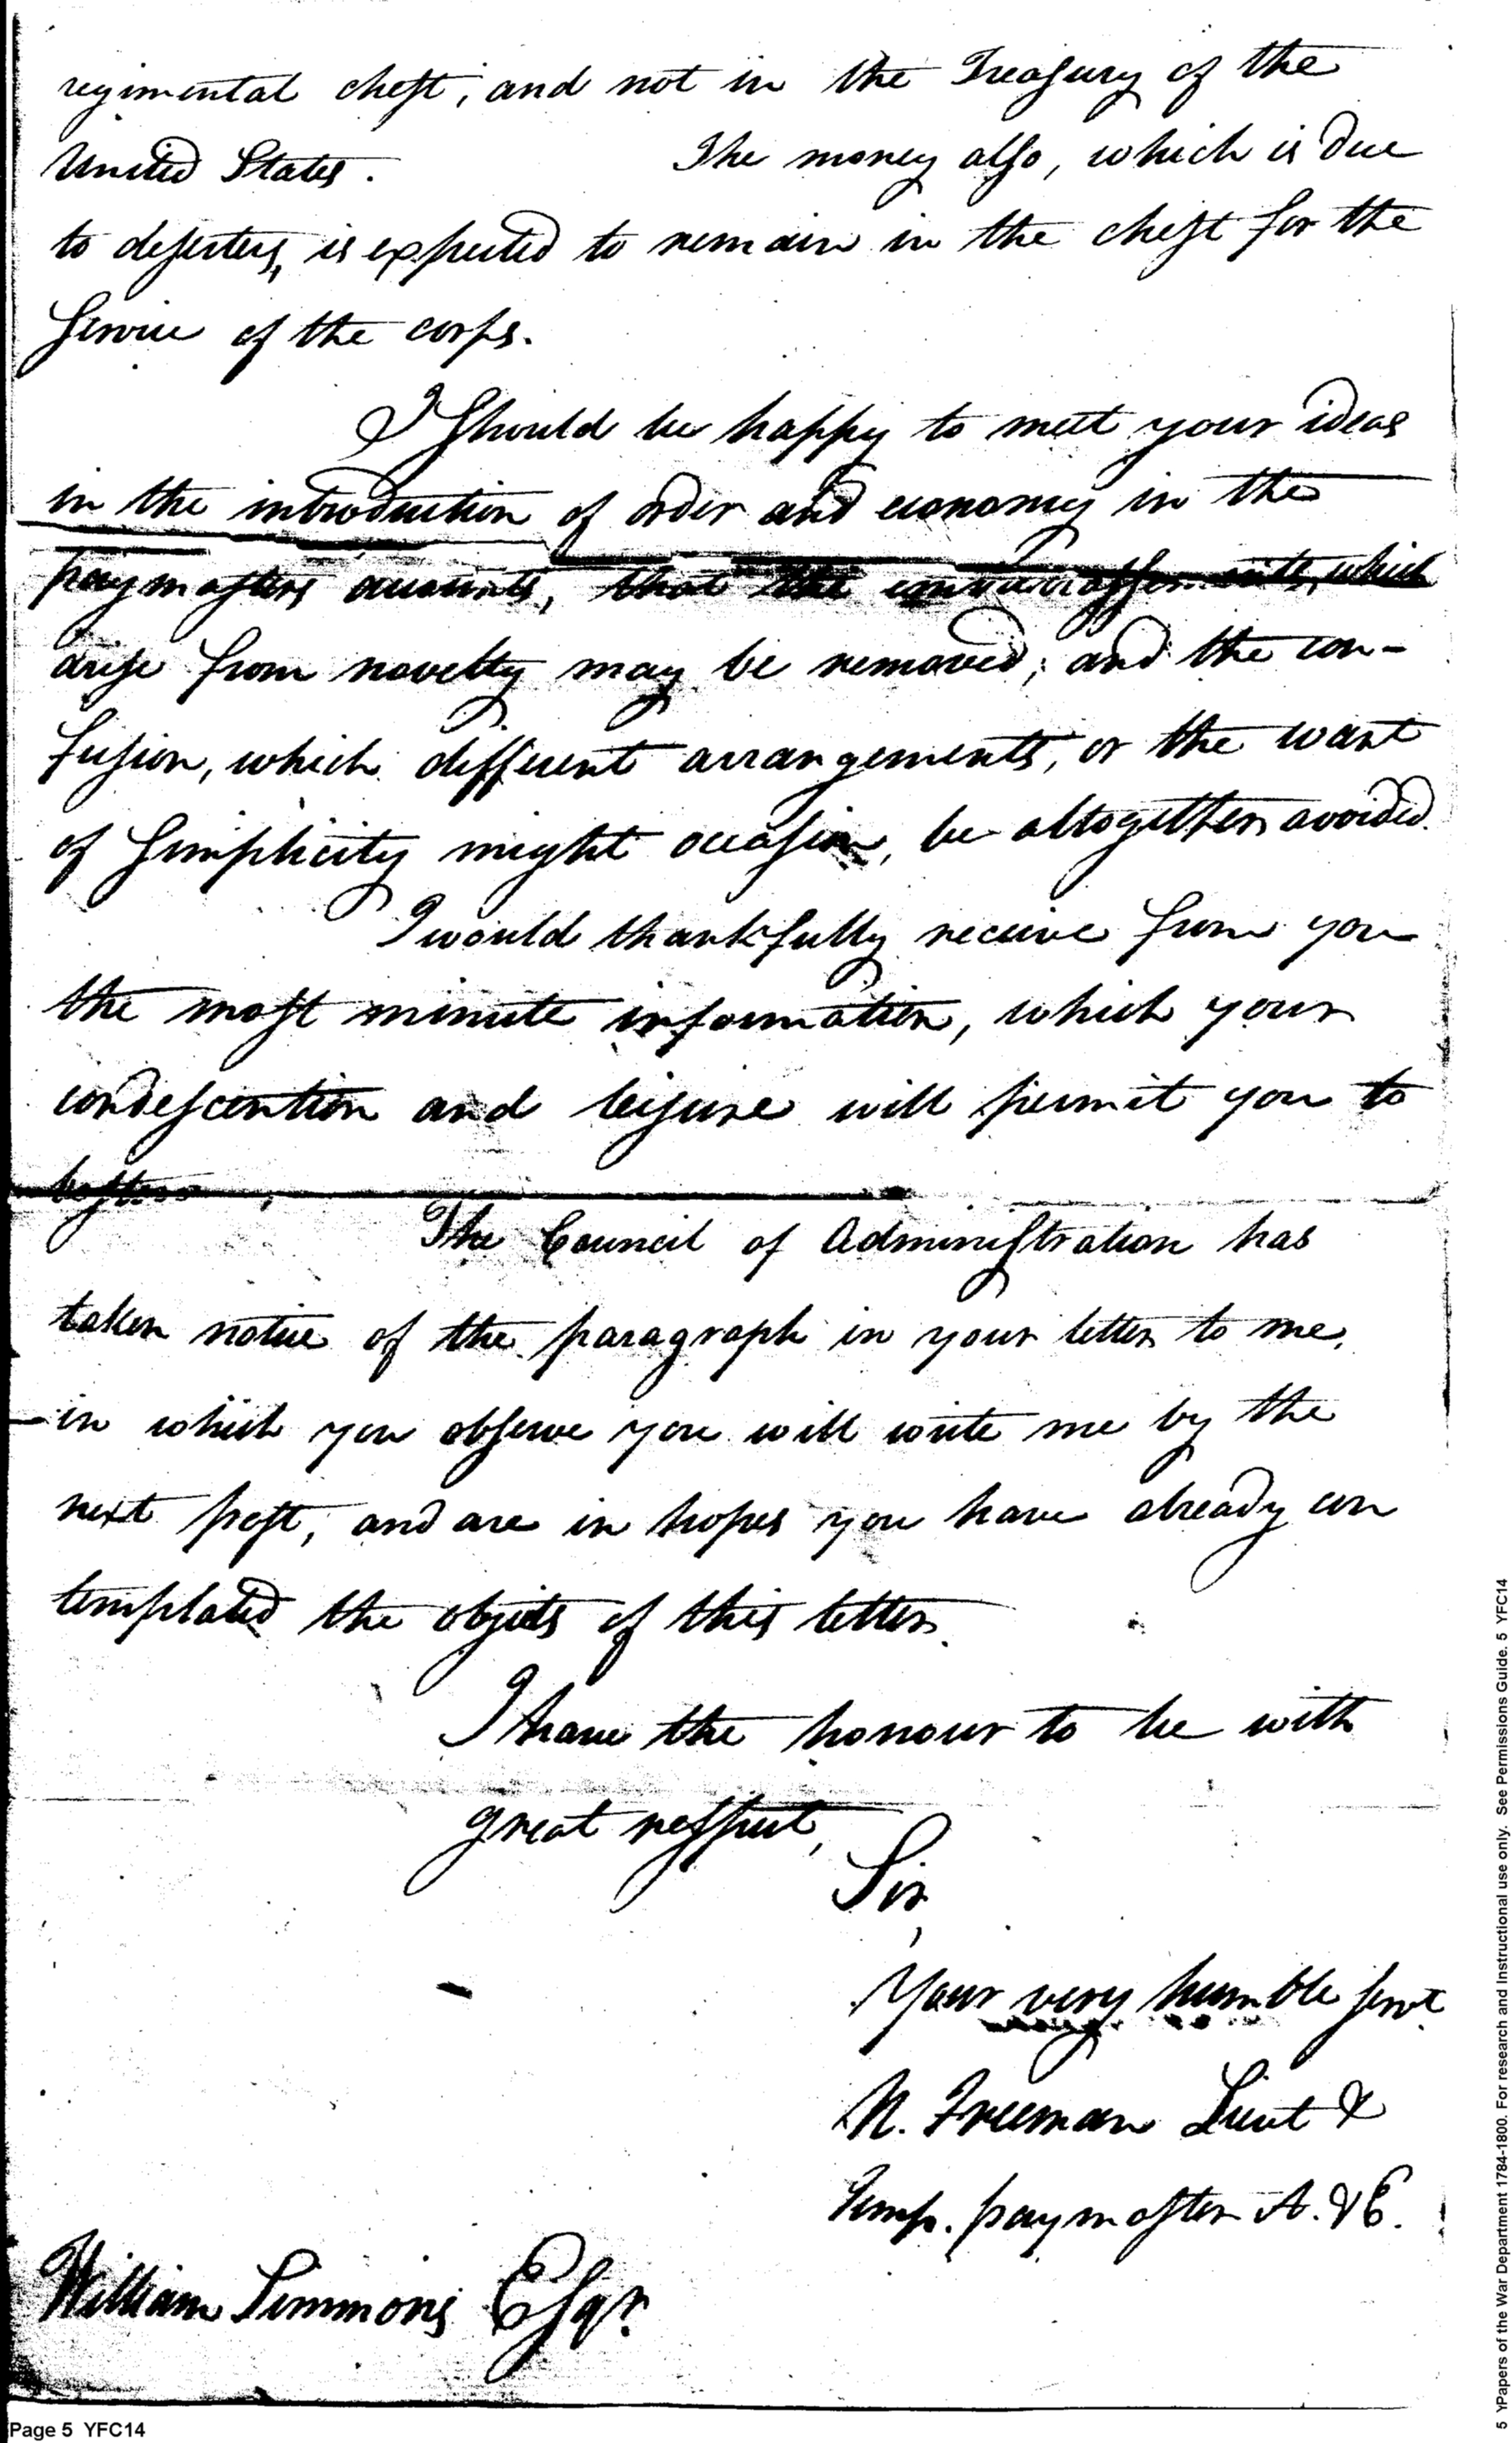 regimental chest; and not in the Treasury of the
United States. The money also, which is due
to deserters, is expected to remain in the chest for the
Service of the corps.
I Should be happy to meet your ideas
in the introduction of order and economy in the
paymasters accounts, that the embarrassments, which
arise from novelty may be removed; and the con-
fusion, which different arrangements, or the want
of Simplicity might occasion, be altogether avoided.
I would thankfully receive from you
the most minute information, which your
condescention and leisure will permit you to
bestow.
The Council of Administration has
taken notice of the paragraph in your letter to me,
in which you observe you will write me by the
next post, and are in hopes you have already con
templated the objects of this letter.
I have the honour to be with
great respect,
Sir,
Your very humble servt
N. Freeman Lieut &
Temp. paymaster A. & E.
William Simmons Esqr.
Page 5 YFC14
5 YPapers of the War Department 1784-1800. For research and Instructional use only. See Permissions Guide. 5 YFC14